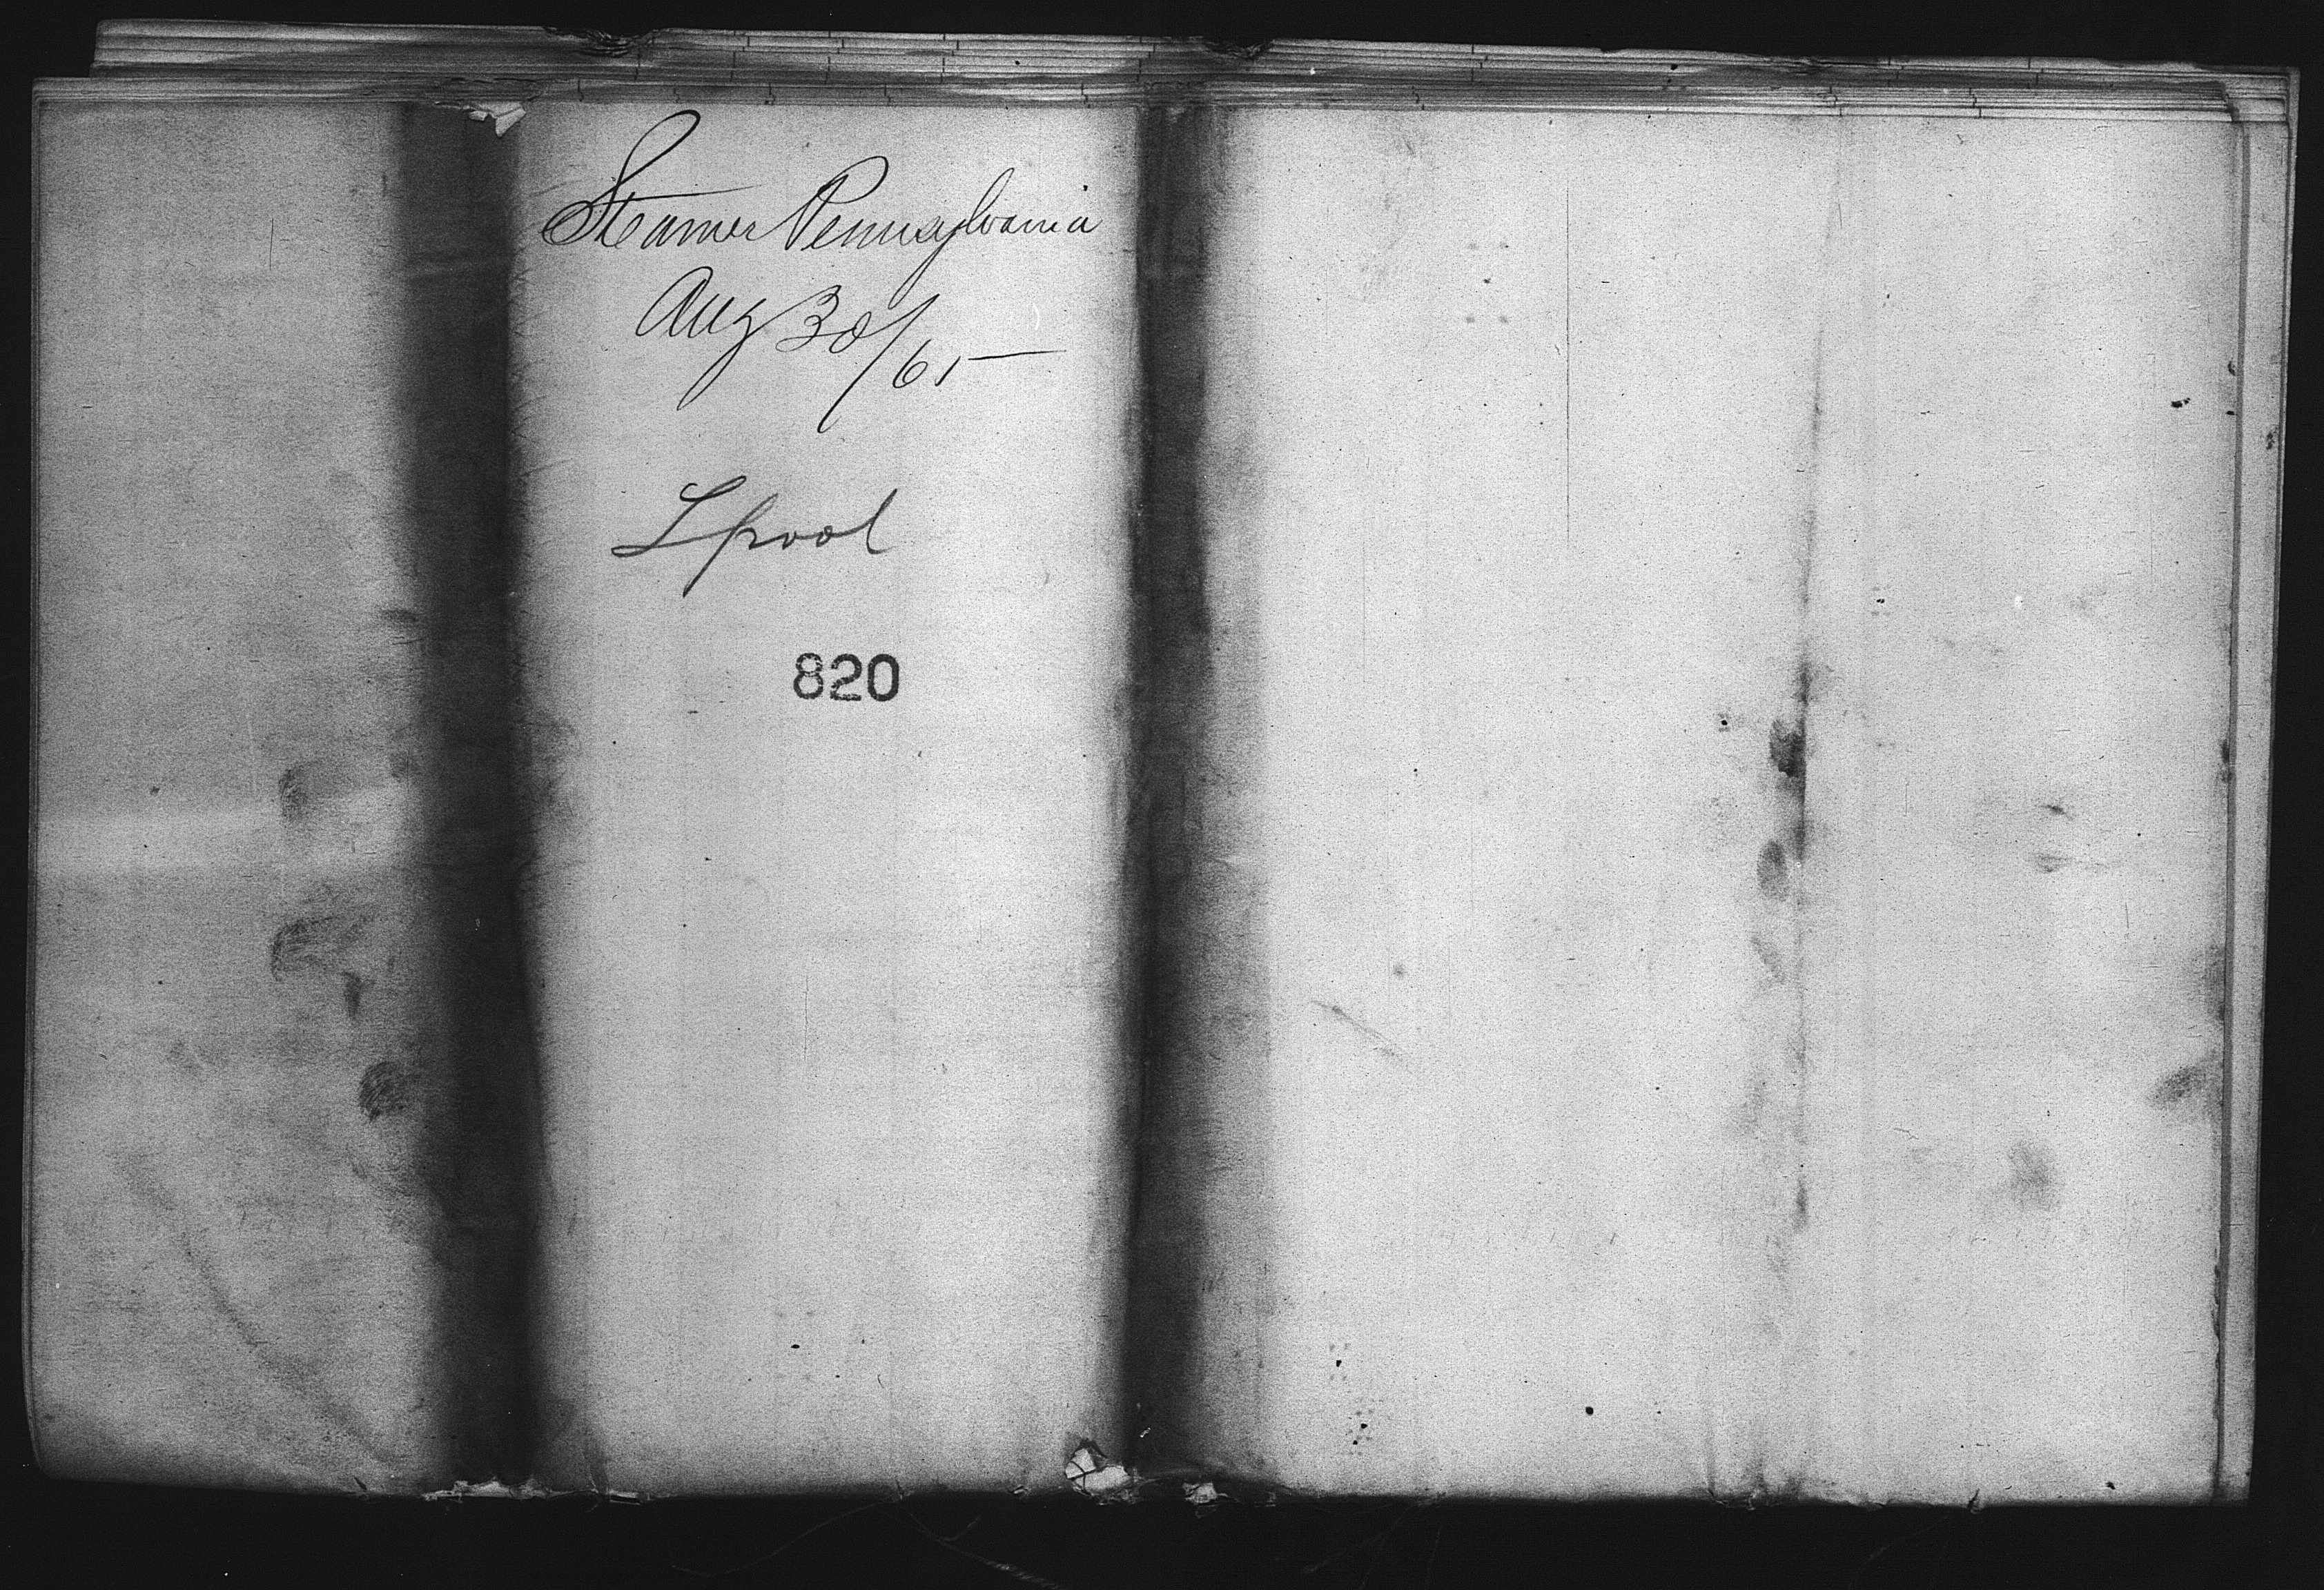 Steamer Pennsylvania
Aug 30/65
Lpool
820